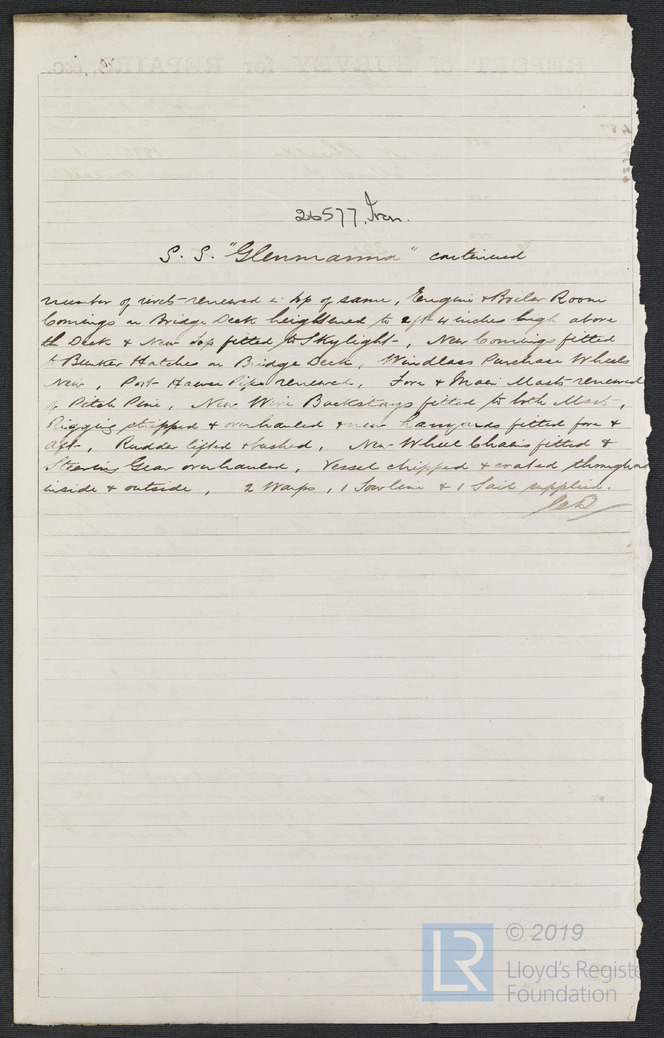 26577 Iron.
S. S. "Glenmanna" continued
number of rivets renewed in top of same, Engine & Boiler Room
Comings on Bridge Deck heightened to 2 ft 4 inches high above
th Deck & New top fitted to Skylight, New Comings fitted
to Bunker Hatches on Bridge Deck, Windlass Purchase Wheels
New, Port Hawse Pipe renewed, Fore & Main Masts renewed
of Pitch Pine, New Wire Backstays fitted to both Masts,
Rigging stripped & overhauled & new Lanyards fitted fore &
aft, Rudder lifted & bushed, New Wheel Chains fitted &
Steering Gear overhauled, Vessel chipped & coated throughout
inside & outside, 2 Warps, 1 Towline & 1 Sail supplied.
LR
© 2019
Lloyd's Register
Foundation